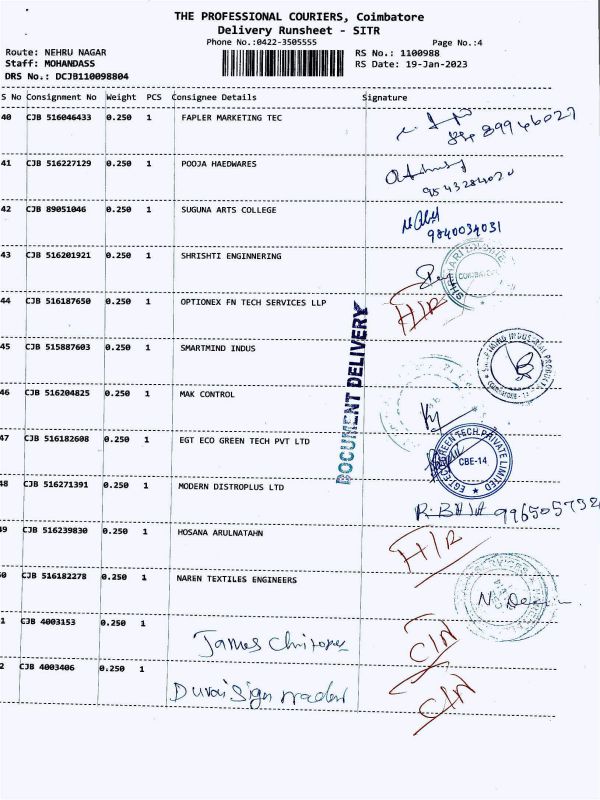 THE PROFESSIONAL COURIERS, Coimbatore
Delivery Runsheet - SITR
Phone No.:0422-3505555 Page No.:4
Route: NEHRU NAGAR RS No.: 1100988
Staff: MOHANDASS RS Date: 19-Jan-2023
DRS No.: DCJB110098804
S No Consignment No Weight PCS Consignee Details Signature
40 CJB 516046433 0.250 1 FAPLER MARKETING TEC
41 CJB 516227129 0.250 1 POOJA HAEDWARES
9543284020
42 CJB 89051046 0.250 1 SUGUNA ARTS COLLEGE
9840034031
43 CJB 516201921 0.250 1 SHRISHTI ENGINNERING
44 CJB 516187650 0.250 1 OPTIONEX FN TECH SERVICES LLP H/R
DOCUMENT DELIVERY
45 CJB 515887603 0.250 1 SMARTMIND INDUS
46 CJB 516204825 0.250 1 MAK CONTROL
47 CJB 516182608 0.250 1 EGT ECO GREEN TECH PVT LTD
EGT ECO GREEN TECH PRIVATE LIMITED
CBE-14
48 CJB 516271391 0.250 1 MODERN DISTROPLUS LTD
49 CJB 516239830 0.250 1 HOSANA ARULNATAHN H/R
0 CJB 516182278 0.250 1 NAREN TEXTILES ENGINEERS
1 CJB 4003153 0.250 1 James C/N
2 CJB 4003406 0.250 1 Durai Sign C/N